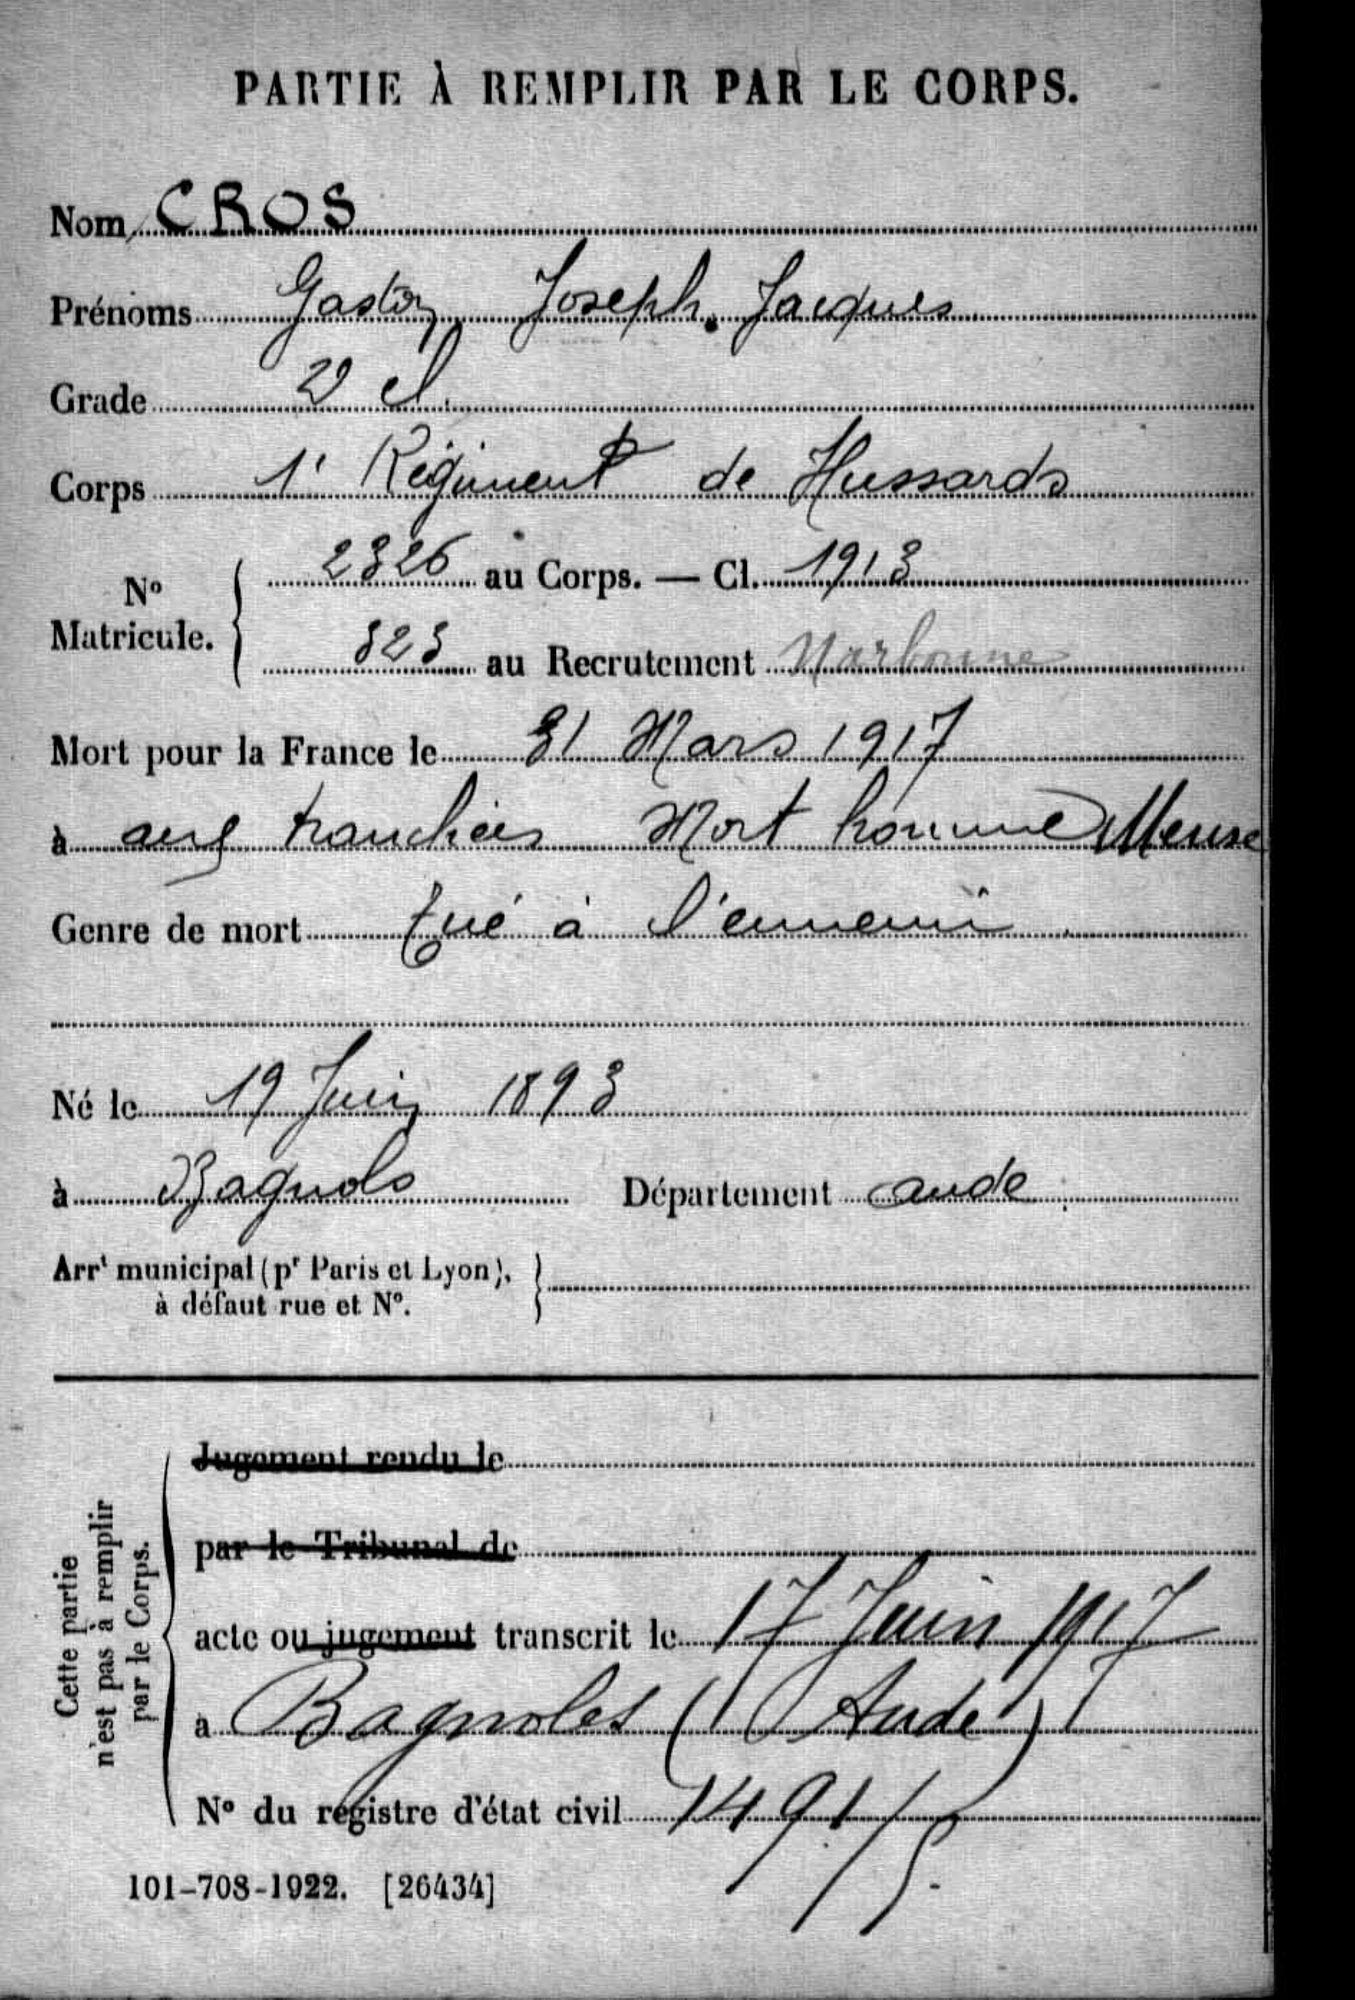 PARTIE À REMPLIR PAR LE CORPS.
Nom CROS
Prénoms Gaston Joseph. Jacques
Grade 2e cl.
Corps 1e Régiment de Hussards
No Matricule. { 2326 au Corps. — Cl. 1913
323 au Recrutement Narbonne
Mort pour la France le 31 Mars 1917
à aux tranchées Mort homme Meuse
Genre de mort Tué à l'ennemi
Né le 19 Juin 1893
à Bagnols Département Aude
Arrt municipal (pr Paris et Lyon),
à défaut rue et No.
Cette partie
n'est pas à remplir
par le Corps.
Jugement rendu le
par le Tribunal de
acte ou jugement transcrit le 17 Juin 1917
à Bagnoles (Aude)
No du registre d'état civil 1491/5.
101-708-1922. [26434]